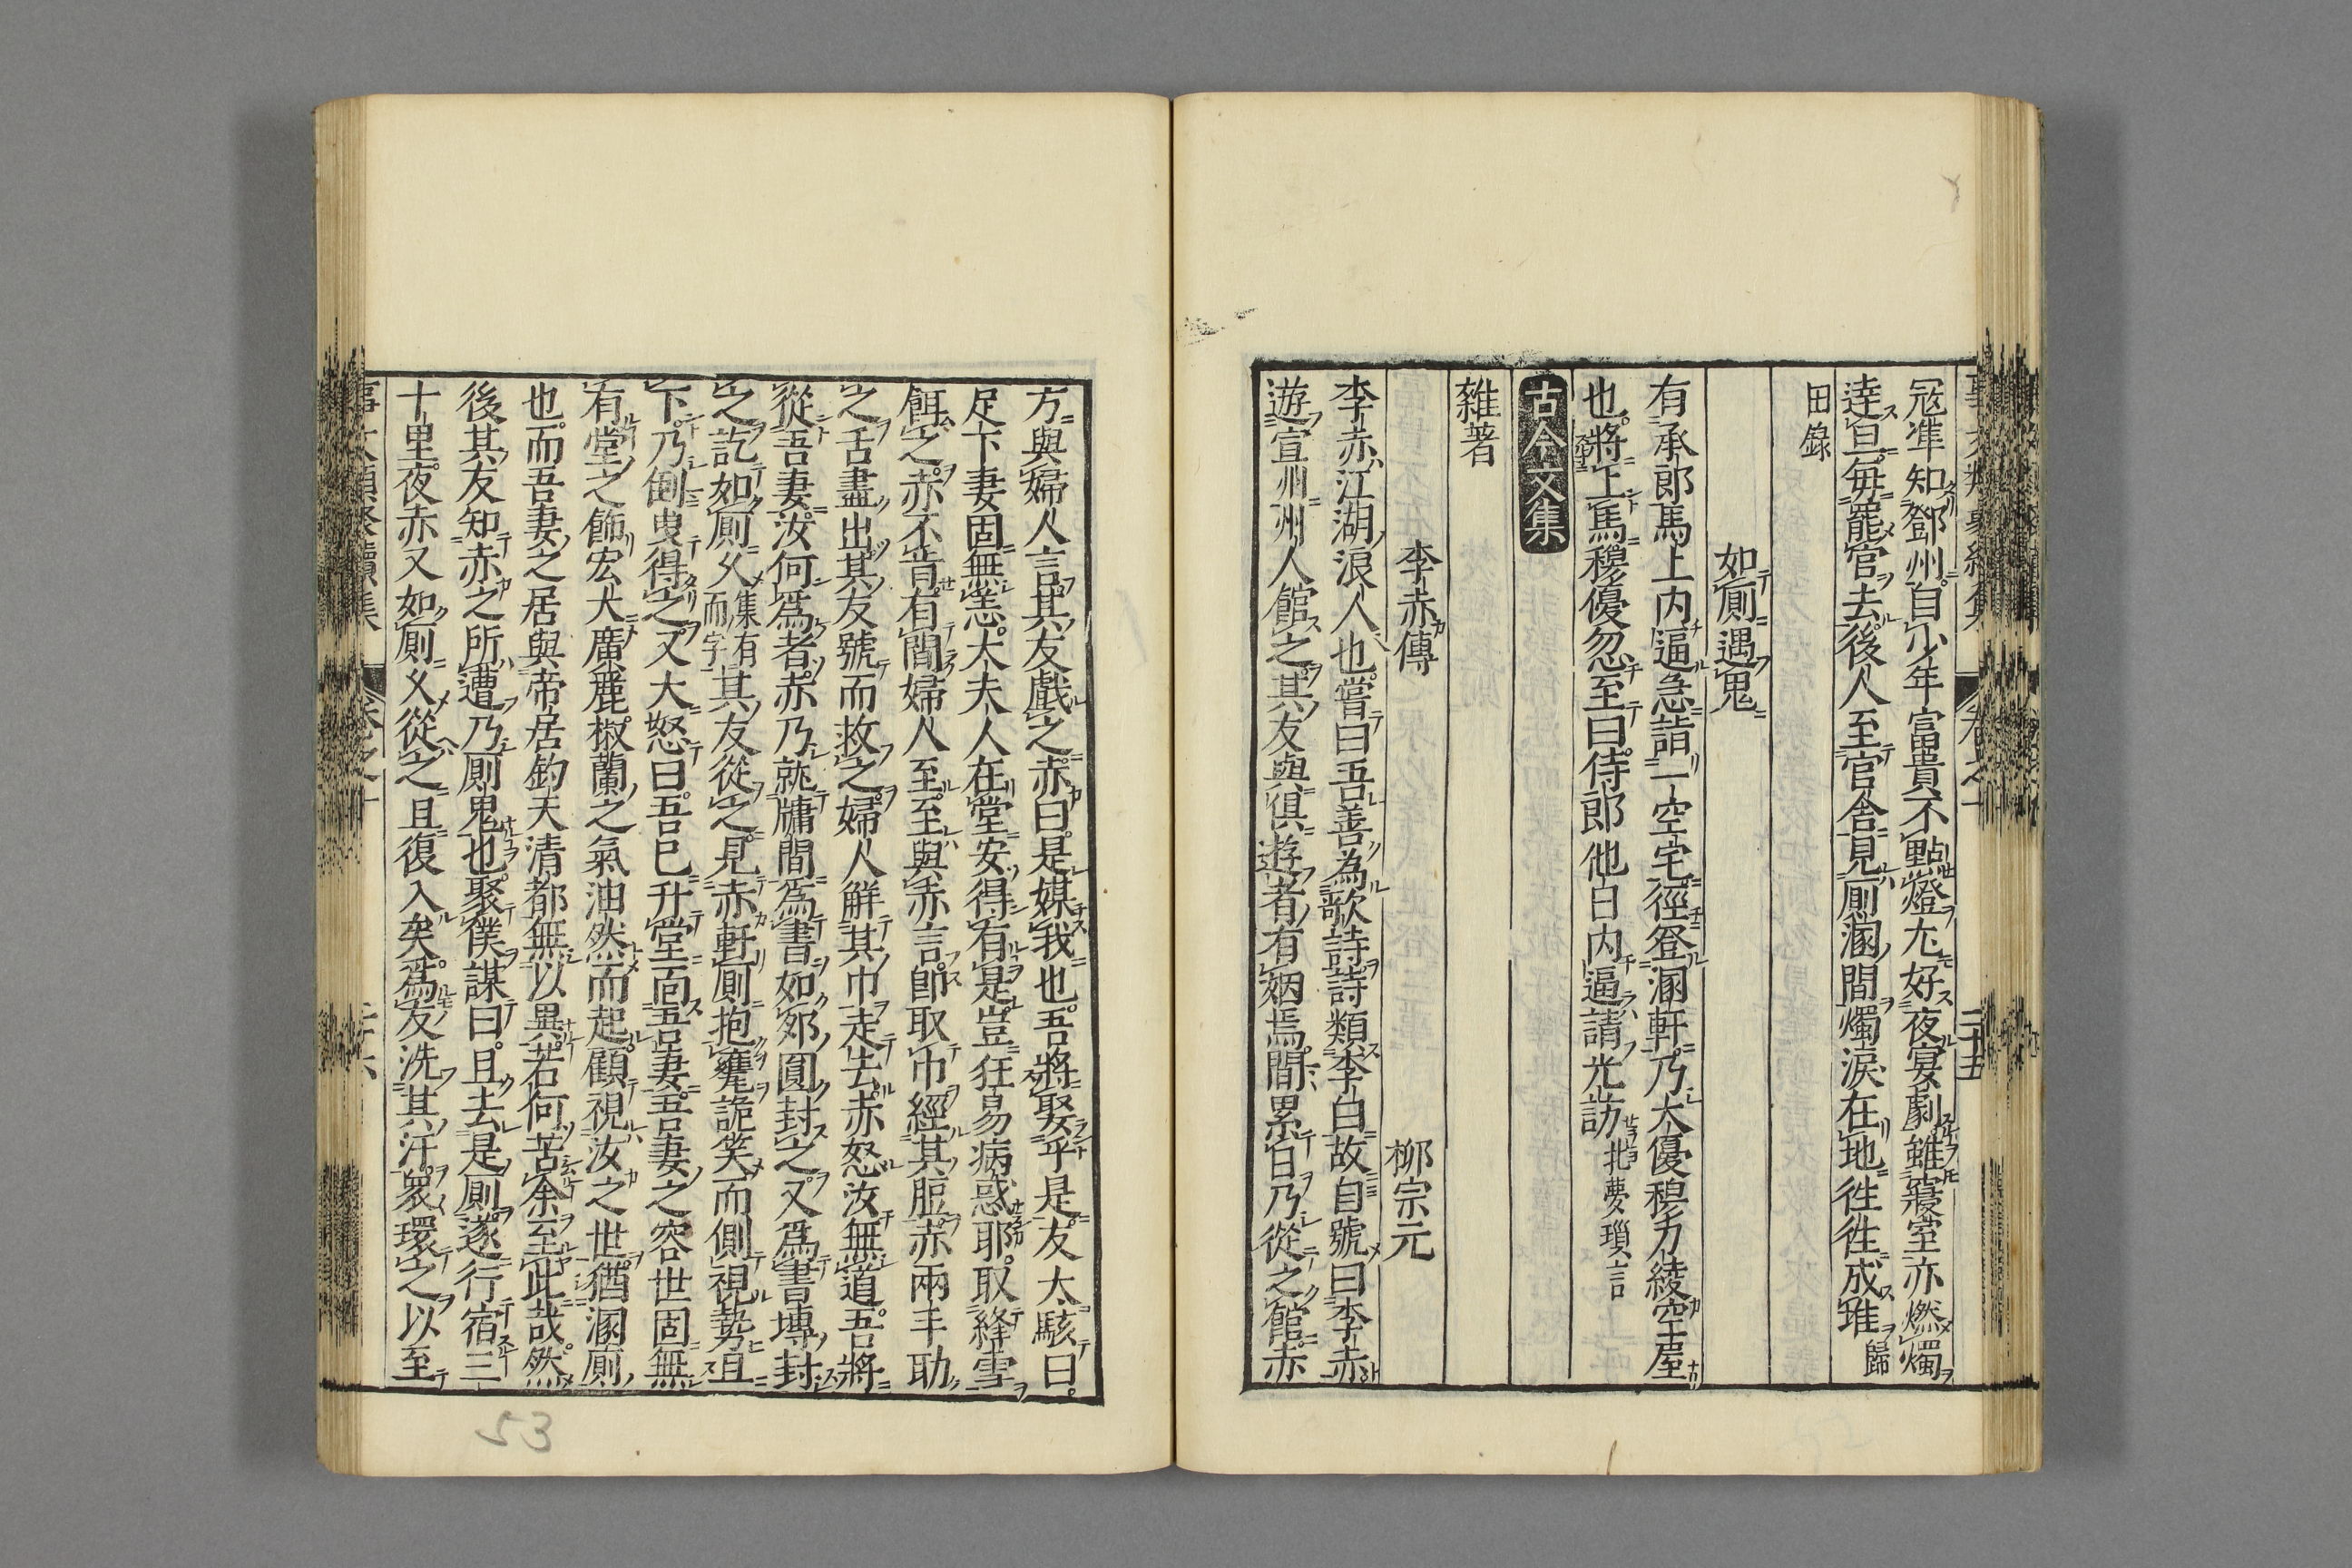 寇準知鄧州自少年富貴不點燈尤好夜宴劇雖寢室亦燃燭
達旦毎罷官去後人至官舎見厠溷間燭淚在地徃徃成堆歸
田錄
如厠遇鬼
有承郎馬上内逼急詣一空宅徑登溷軒乃大優穆刀綾空屋
也將上馬穆優忽至曰侍郎他日内逼請光訪北夢瑣言
古今文集
雜著
李赤傳 柳宗元
李赤江湖浪人也嘗曰吾善為歌詩詩類李白故自號曰李赤
遊宣州州人館之其友與俱遊者有姻焉間累日乃從之館赤
方與婦人言其友戲之赤曰是媒我也吾將娶乎是友大駭曰
足下妻固無恙大夫人在堂安得有是豈狂易病惑耶取絳雪
餌之赤不肯有間婦人至至與赤言卽取巾經其脰赤兩手助
之舌盡出其友號而救之婦人觧其巾走去赤怒汝無道吾將
從吾妻汝何爲者赤乃就牗間爲書如䣓圓封之又爲書塼封
之訖如厠乆集有而字其友從之見赤軒厠抱甕詭笑而側視勢且
下乃倒曳得之又大怒曰吾已升堂面吾妻吾妻之容世固無
有堂之飾宏大廣麗椒蘭之氣油然而起顧視汝之世猶溷厠
也而吾妻之居與帝居鈞天清都無以異若何苦余至此哉然
後其友知赤之所遭乃厠鬼也聚僕謀曰且去是厠遂行宿三
十里夜赤又如厠乆從之且復入矣爲友洗其汙衆環之以至
53